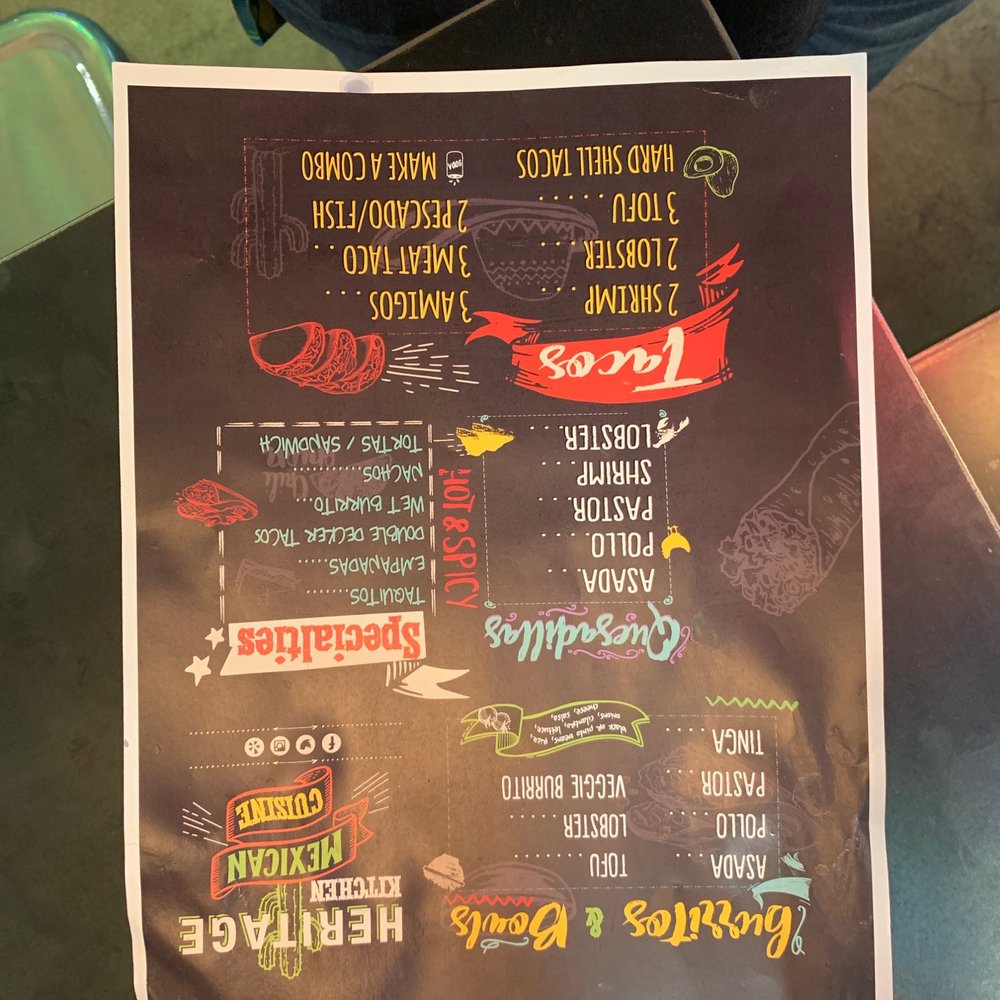 Burritos & Bowls
ASADA....
POLLO....
PASTOR....
TINGA....
TOFU.......
LOBSTER.......
VEGGIE BURRITO
black or pinto weans, rice,
onions, cilantro, lettuce,
cheese, salsa,
HERITAGE
KITCHEN
MEXICAN
CUISINE
Quesadillas
ASADA....
POLLO....
PASTOR....
SHRIMP....
LOBSTER....
HOT & SPICY
Specialties
TAQUITOS......
EMPANADAS......
DOUBLE DECKER TACOS
WET BURRITO......
NACHOS.........
TORTAS / SANDWICH
Tacos
2 SHRIMP.....
2 LOBSTER.....
3 TOFU......
HARD SHELL TACOS
3 AMIGOS....
3 MEAT TACO...
2 PESCADO/FISH
SODA
MAKE A COMBO